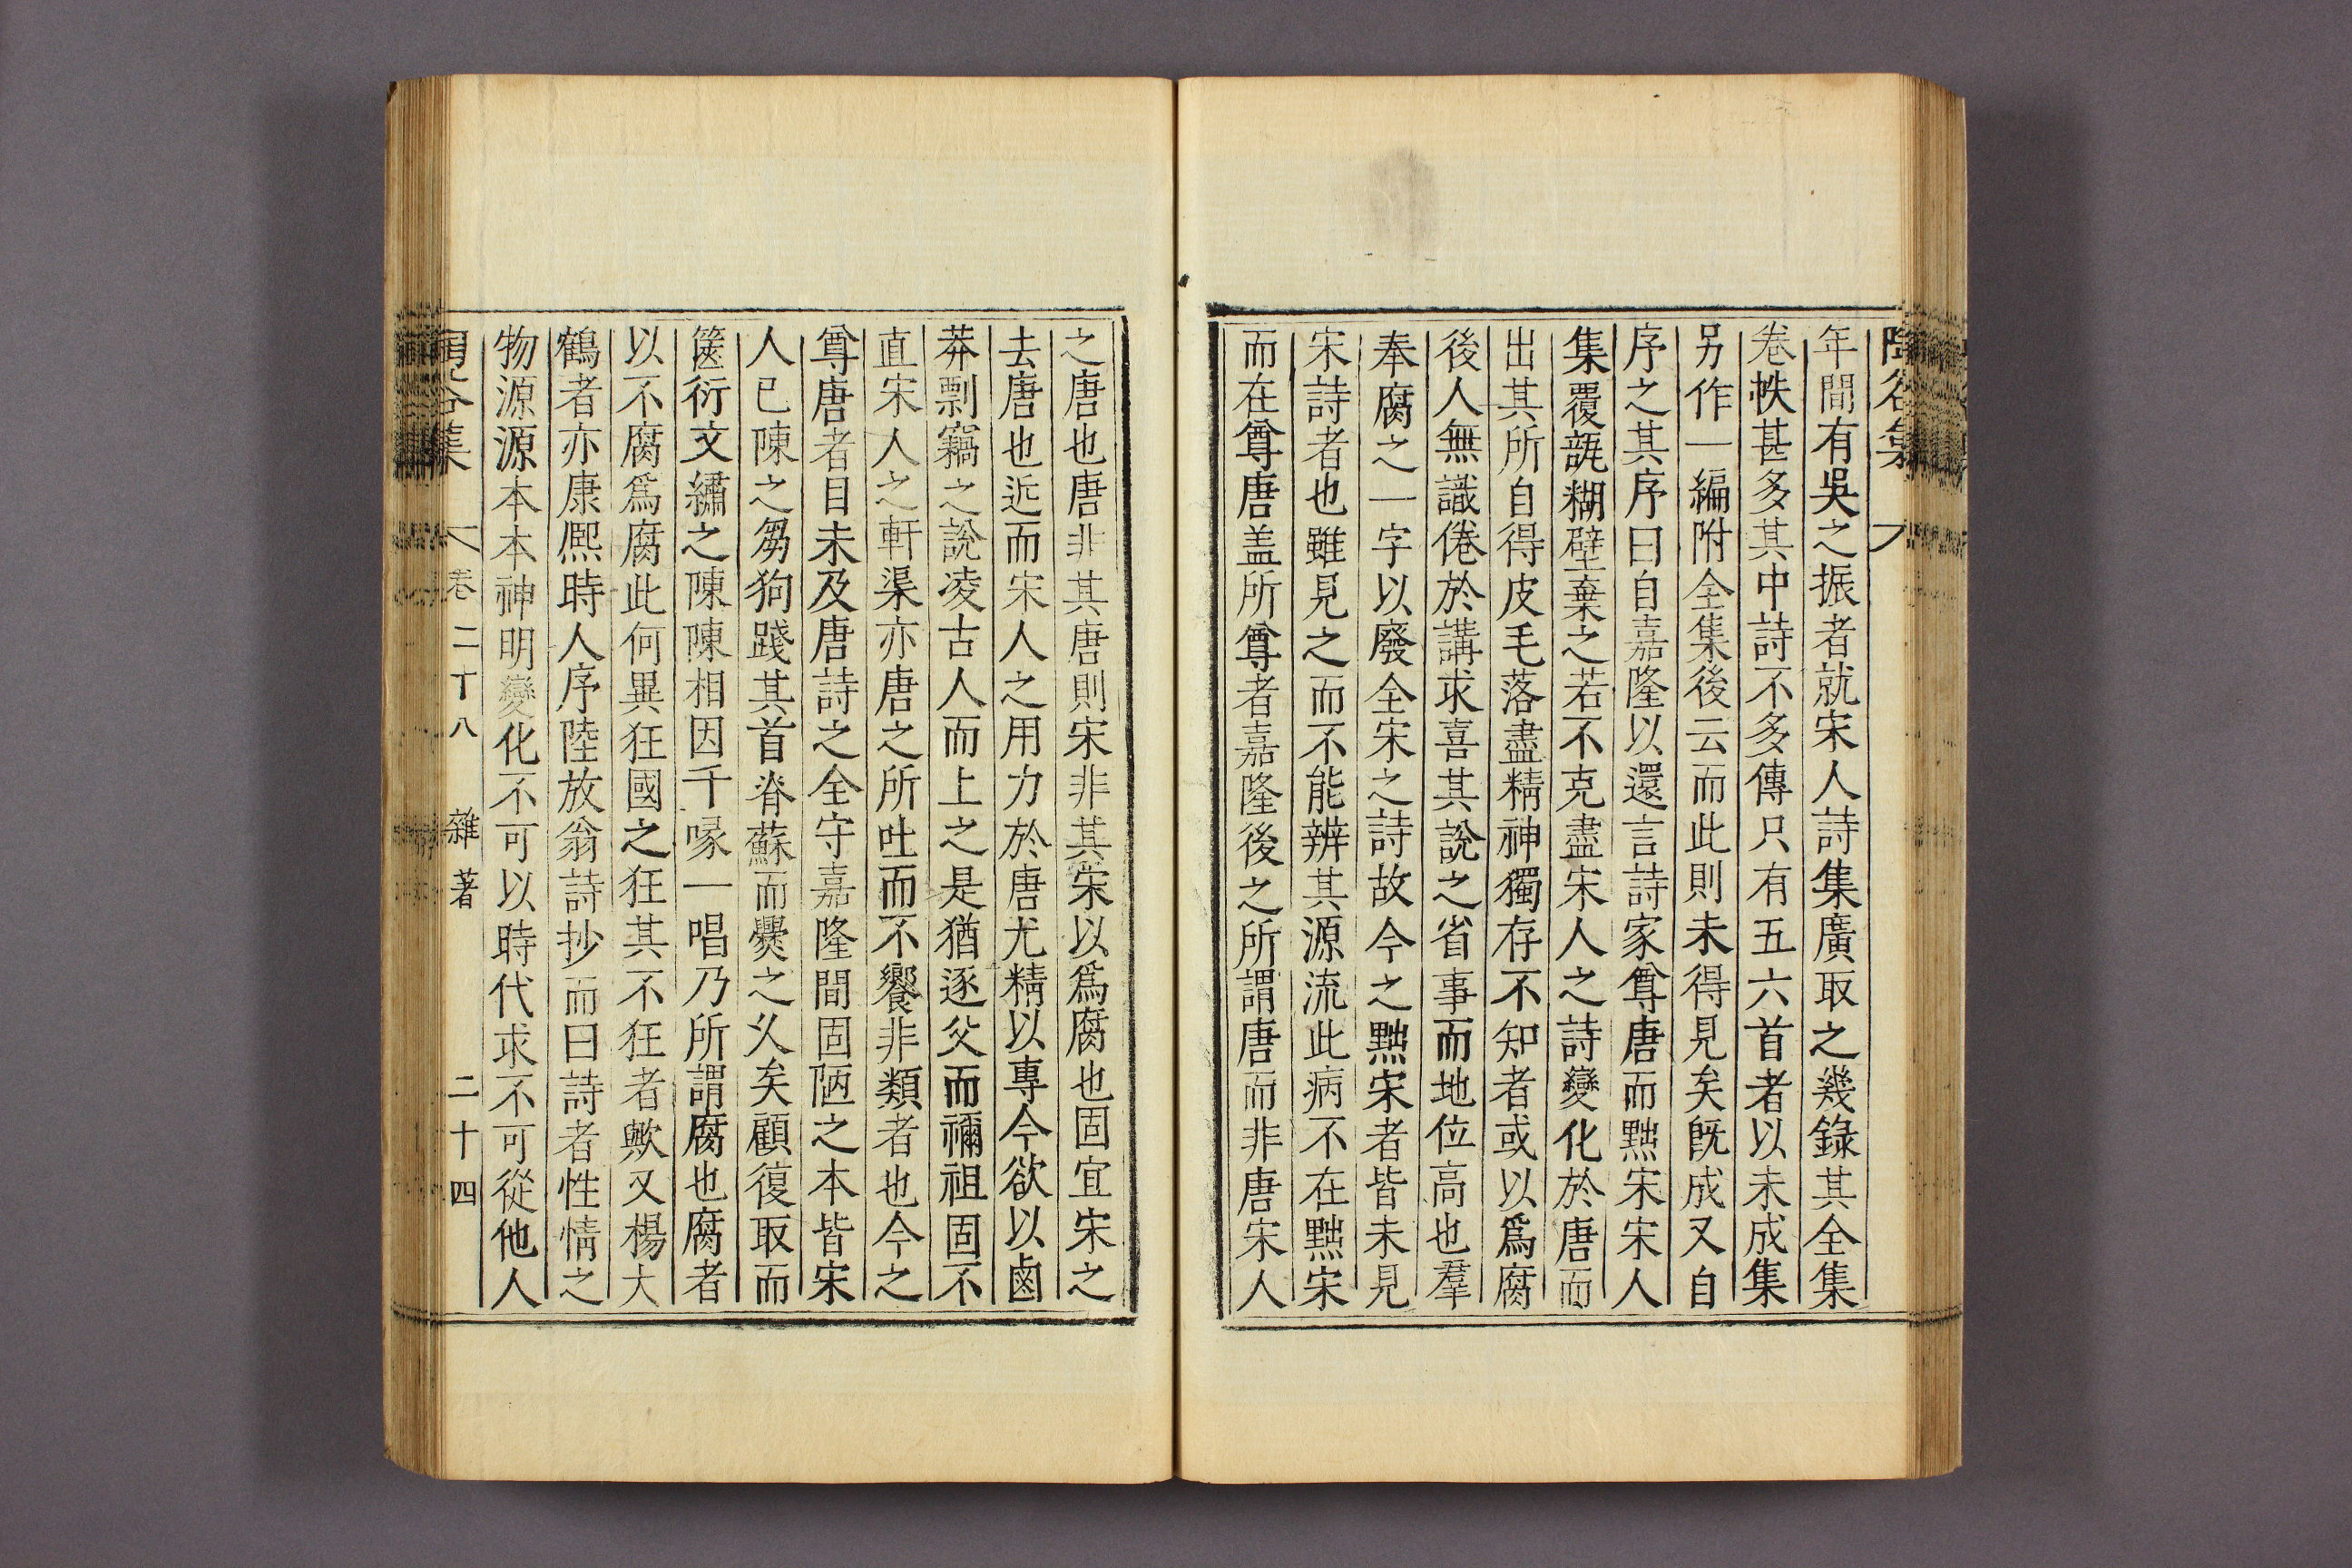 年間有吳之振者就宋人詩集廣取之幾錄其全集
卷帙甚多其中詩不多傳只有五六首者以未成集
另作一編附全集後云而此則未得見矣旣成又自
序之其序曰自嘉隆以還言詩家尊唐而黜宋宋人
集覆瓿糊壁棄之若不克盡宋人之詩變化於唐而
出其所自得皮毛落盡精神獨存不知者或以爲腐
後人無識倦於講求喜其說之省事而地位高也羣
奉腐之一字以廢全宋之詩故今之黜宋者皆未見
宋詩者也雖見之而不能辨其源流此病不在黜宋
而在尊唐盖所尊者嘉隆後之所謂唐而非唐宋人
之唐也唐非其唐則宋非其宋以爲腐也固宜宋之
去唐也近而宋人之用力於唐尤精以專今欲以鹵
莽剽竊之說凌古人而上之是猶逐父而禰祖固不
直宋人之軒渠亦唐之所吐而不饗非類者也今之
尊唐者目未及唐詩之全守嘉隆間固陋之本皆宋
人已陳之芻狗踐其首脊蘇而爨之乆矣顧復取而
篋衍文繡之陳陳相因千喙一唱乃所謂腐也腐者
以不腐爲腐此何異狂國之狂其不狂者歟又楊大
鶴者亦康熙時人序陸放翁詩抄而曰詩者性情之
物源源本本神明變化不可以時代求不可從他人
谷集 卷二十八 雜著 二十四